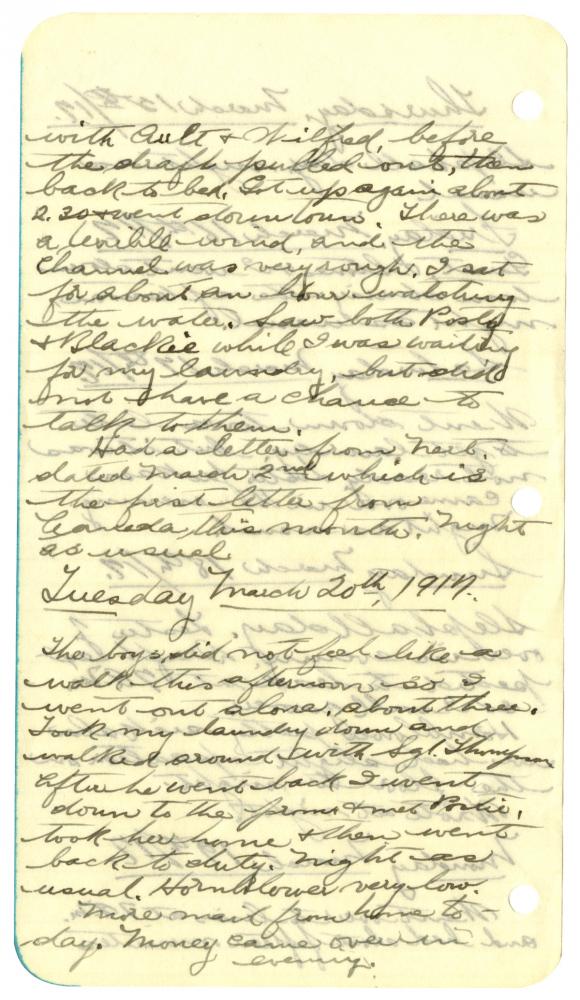 with Ault & Wilfred, before
the draft pulled out, then
back to bed. Got up again about
2.30 & went down town. There was
a terrible wind, and the
Channel was very rough. I sat
for about an hour watching
the water. Saw both
& Blackie while I was waiting
for my laundry, but did
not have a chance to
talk to them.
Had a letter from
dated March 2nd which is
the first letter from
Canada this month. Night
as usual
Tuesday March 20th, 1917.
The boys did not feel like a
walk this afternoon so I
went out alone, about three.
Took my laundry down and
walked around with Sgt. Thompson
After he went back I went
down to the prom. & met
took her home & then went
back to duty. Night as
usual. Hornblower very low.
More mail from home to-
day. Money came over in
evening.